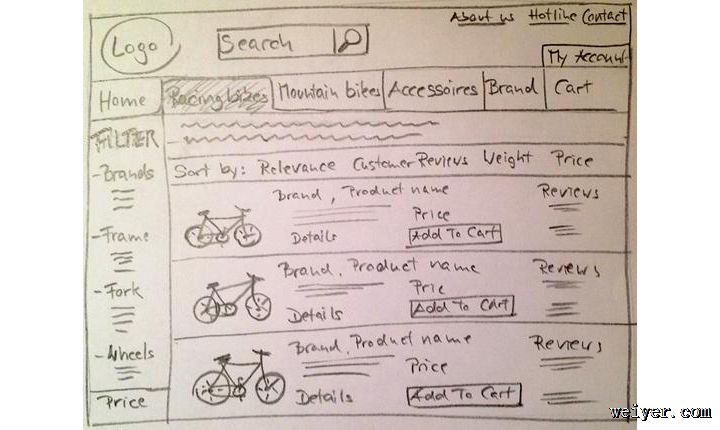 About us Hotline Contact
Logo
Search
My Account
Home Racing bikes Mountain bikes Accessoires Brand Cart
FILTER
Sort by: Relevance Customer Reviews Weight Price
- Brands
Brand, Product name Reviews
Price
- Frame
Details Add To Cart
Brand, Product name Reviews
- Fork
Price
Details Add To Cart
- Wheels
Brand, Product name Reviews
Price
Price
Details Add To Cart
weiyer.com